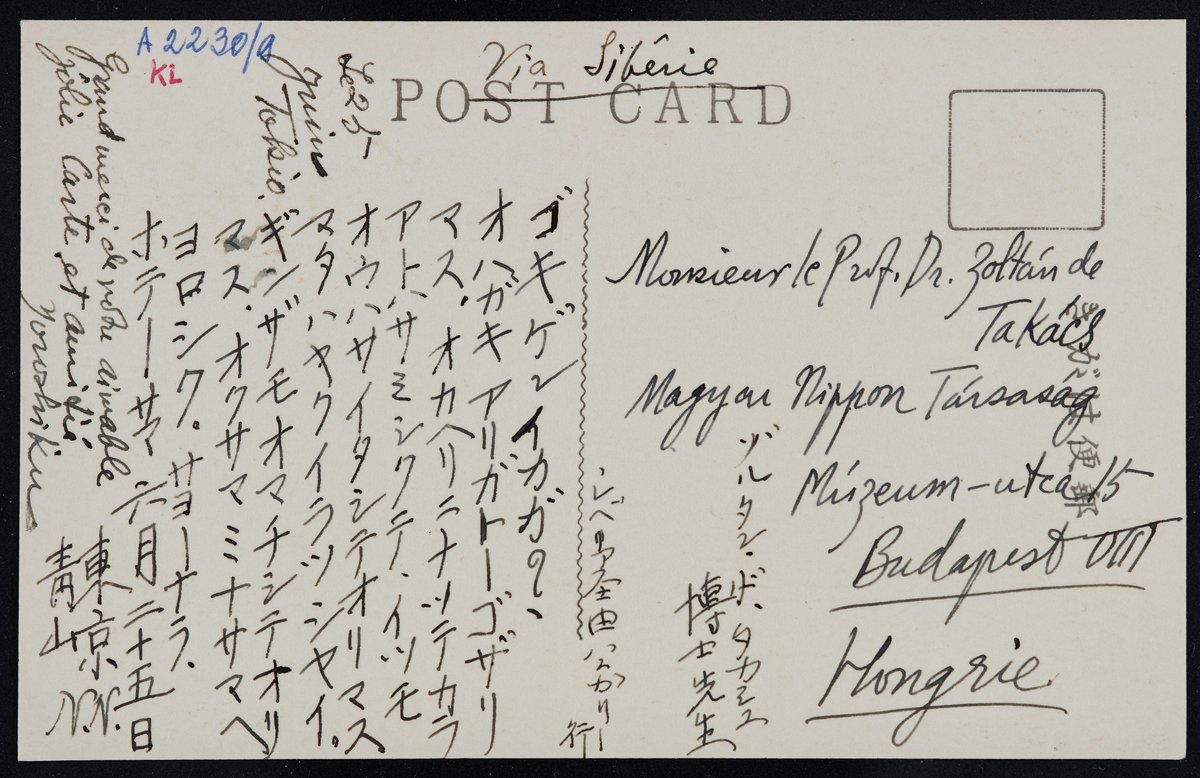 A 2230/9
KL
Via Sibérie
POST CARD
Le 25
juin
Tokio.
Monsieur le Prof. Dr. Zoltán de
Takács
Magyar Nippon Társaság
Múzeum-utca 15
Budapest VIII
Hongrie
きがは便郵
ゾルタン・ド・タカーチ
博士先生
シベリア経由ハンガリー
行
ゴキゲンイカガ?、
オハガキアリガトーゴザリ
マス、オカヘリニナッテカラ
アトハサミシクテ、イツモ
オウハサイタシテオリマス
マタハヤクイラッシヤイ。
ギンザモオマチシテオリ
マス。オクサマミナサマヘ
ヨロシク。サヨーナラ、
ホテーサ 六月二十五日
東京
青山
N.N.
Grand merci de votre aimable
jolie Carte et amitié
Yoroshiku